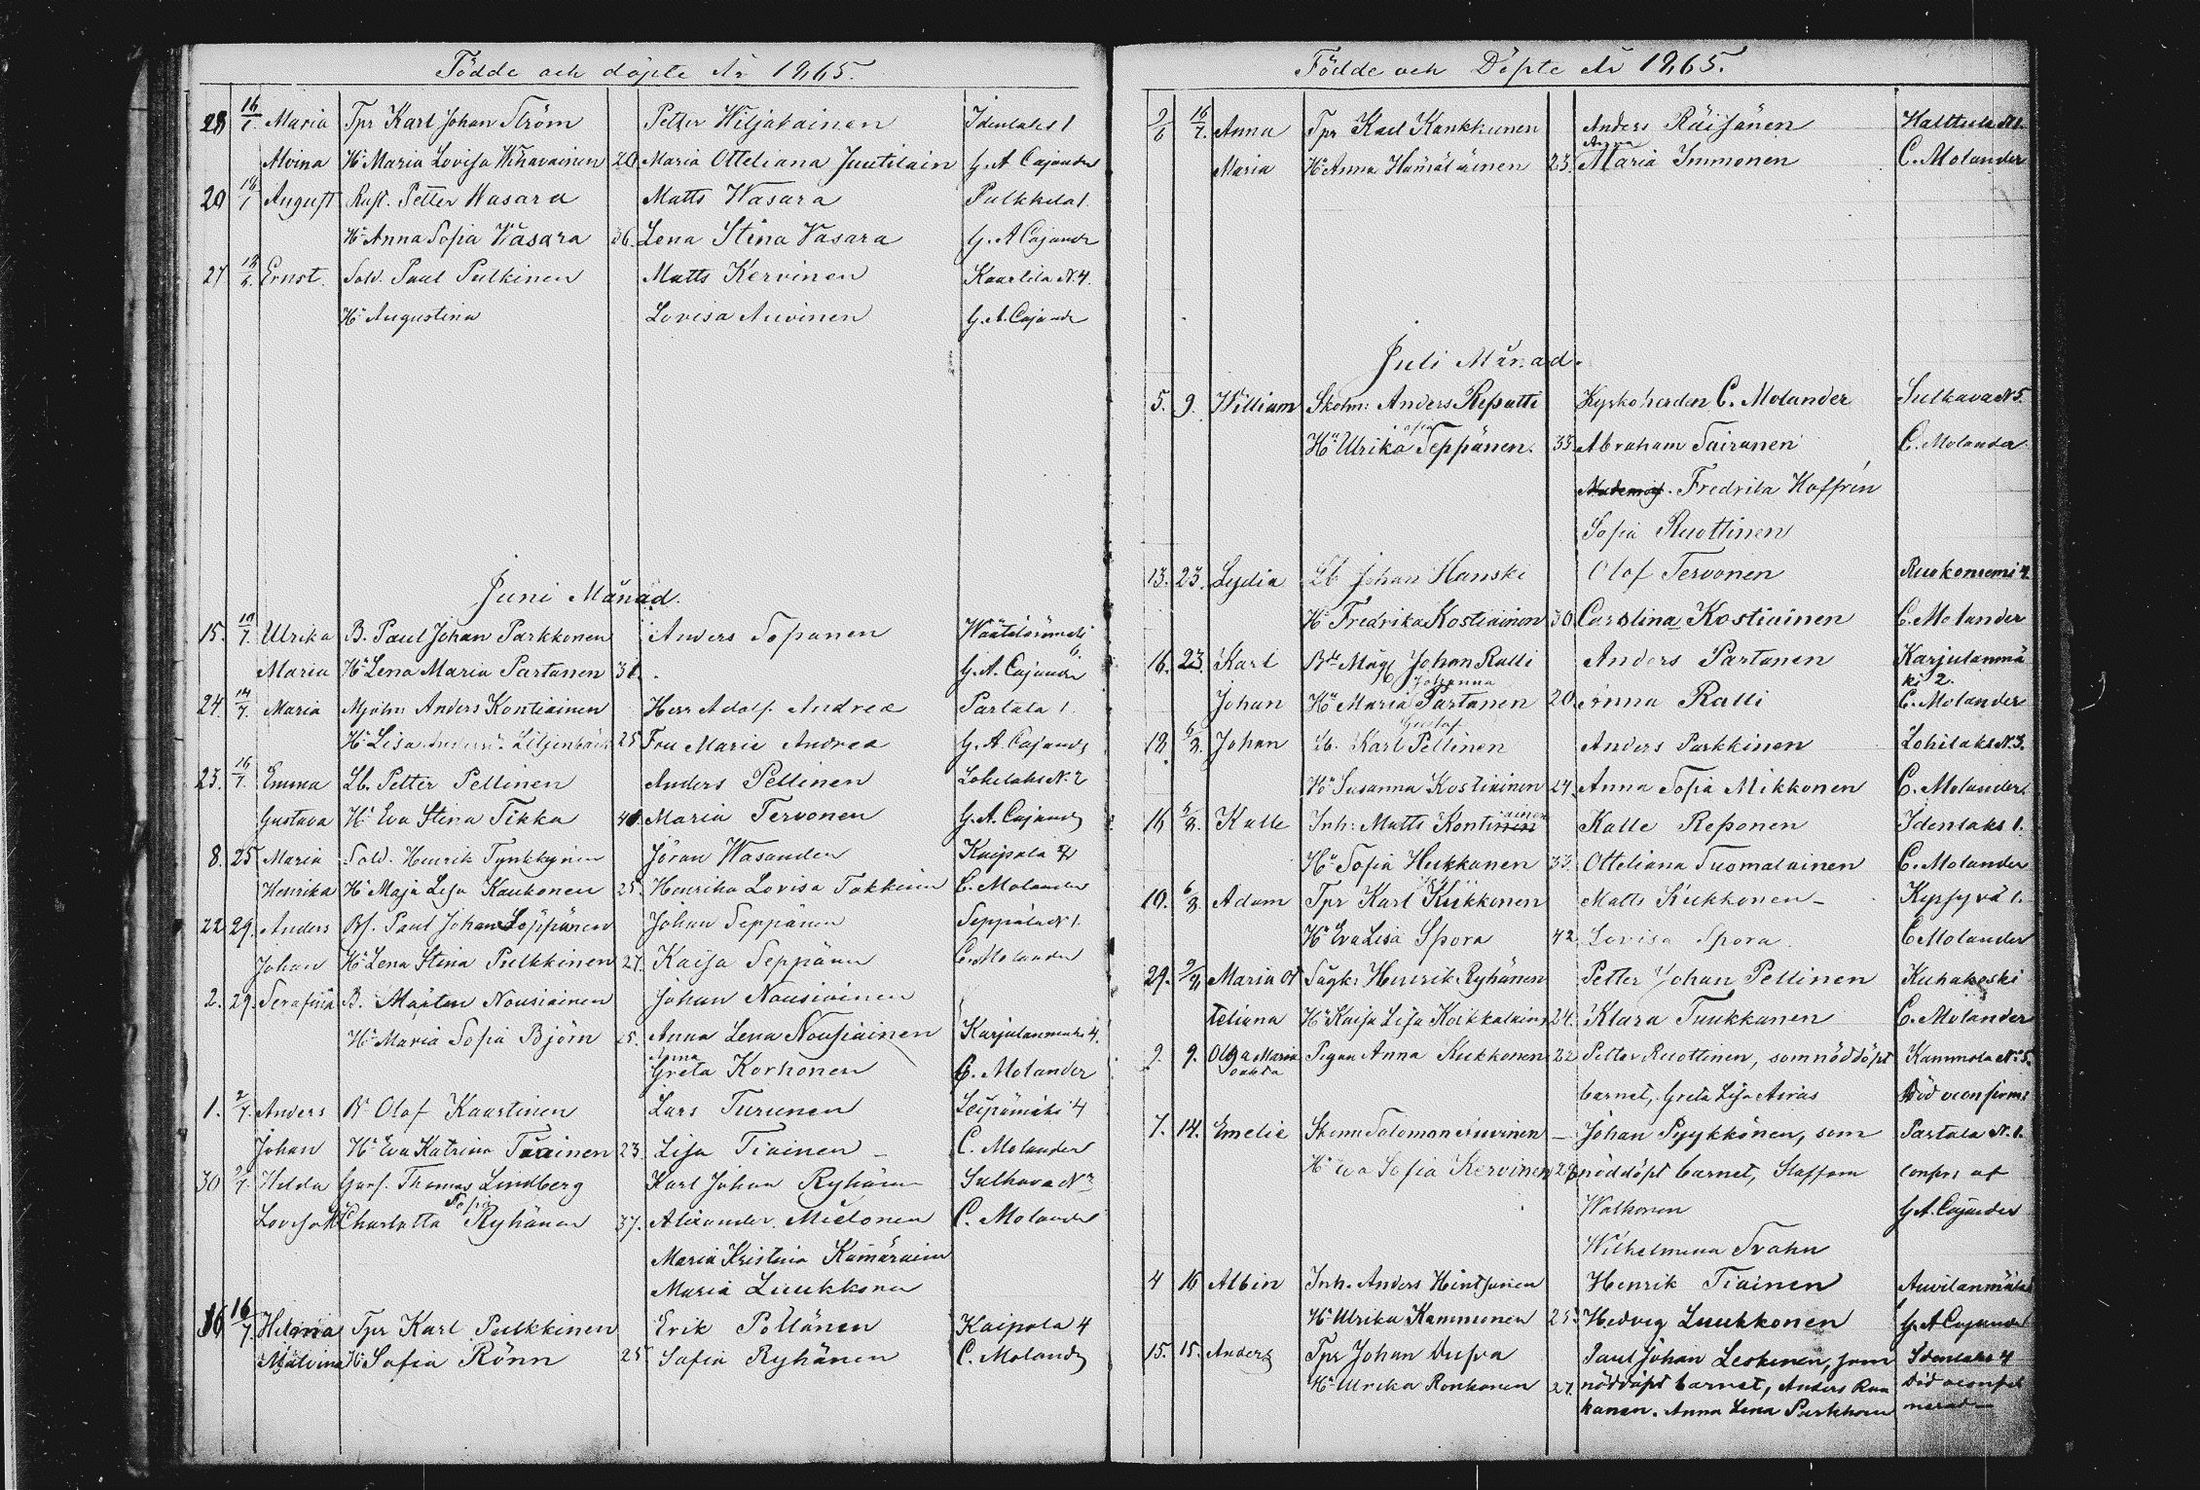 Födde och döpte År 1865.
28 16/7. Maria Tpr Karl Johan Ström Petter Wiljakainen Idenlaks 1
Alvina Hu Maria Lovisa Wihavainen 20. Maria Otteliana Juutilain G. A Cajander
20 18/6 August Rust. Petter Wasara Matts Wasara Pulkkila 1.
Hu Anna Sofia Wasara 36. Lena Stina Vasara G. A Cajandr
27 18/6. Ernst. Sold. Paul Pulkinen Matts Kervinen Kaartila N. 4.
Hu Augustina Lovisa Auvinen G. A. Cajandr
Juni Månad.
15. 10/7. Ulrika B. Paul Johan Parkkonen Anders Sopanen
Maria Hu Lena Maria Partanen 31. G. A. Cajander
24. 14/7. Maria Mjöln: Anders Kontiainen Herr Adolf Andrea Partala 1.
Hu Lisa 25 Fru Maria Andrea G. A. Cajandr
23. 16/7. Emma Lb. Petter Pellinen Anders Pellinen Lohilaks N. 2
Gustava Hu Eva Stina Tikka 41. Maria Tervonen G. A. Cajandr
8. 25 Maria Sold. Henrik Tynkkynen Jöran Wasander Kaipala 4
Henrika Hu Maja Lisa Kaukonen 25. Henrika Lovisa Tokkinen C. Molander
22 29. Anders Bf. Paul Johan Seppänen Johan Seppänen Seppäla N 1.
Johan Hu Lena Stina Pulkkinen 27. Kaisa Seppänen C. Molander
2. 29. Serafina B. Mårten Nousiainen Johan Nousiainen
Hu Maria Sofia Björn 25. Anna Lena Nousiainen Karjulanmäki 4.
Anna
Greta Korhonen C. Molander
1. 2/7. Anders B. Olof Kaartinen Lars Turunen Leipämäki 4
Johan Hu Eva Katrina Tiainen 23. Lisa Tiainen C. Molander
30 9/7. Hilda Garf. Thomas Lindberg Karl Johan Ryhänen Sulkava N
Sofia
Lovisa Hu Charlotta Ryhänen 37. Alexander Mielonen C. Molander
Maria Kristina Kämäräinen
Maria Luukkonen
16 16/7. Helena Tpr Karl Pulkkinen Erik Pöllänen Kaipala 4
Malvina Hu Sofia Rönn 25 Sofia Ryhänen C. Molandr
Födde och Döpte År 1865.
9/6 16/7. Anna Tpr Karl Kankkunen Anders Räisänen Halttula N 1.
Anna
Maria Hu Anna Hämäläinen 23. Maria Immonen C. Molander
Juli Månad.
5. 9. William Skolm: Anders Repatti Kyrkoherden C. Molander Sulkava N 5.
Sofia
Hu Ulrika Seppänen. 33. Abraham Tairanen C. Molander
Mademois. Fredrika Hoffrén
Sofia Ruottinen
13. 23. Lydia Lb Johan Hanski Olof Tervonen Ruokoniemi 4
Hu Fredrika Kostiainen 30. Carolina Kostiainen C. Molander
16. 23. Karl Bde Måg Johan Ralli Anders Partanen Karjulanmä
Johanna ki 2.
Johan Hu Maria Partanen 20. Anna Ralli C. Molander
Gustaf
18. 5/8. Johan Lb. Karl Pellinen Anders Parkkinen Lohilaks N. 3.
Hu Susanna Kostiainen 24. Anna Sofia Mikkonen C. Molander
16 5/8. Kalle Inh: Matts Kontiainen Kalle Reponen Idenlaks 1.
Hu Sofia Hukkanen 33. Otteliana Tuomalainen C. Molander
10. 6/8. Adam Tpr Karl Kukkonen Matts Kukkonen Kypsyvä 1.
Hu Eva Lisa Spora 42. Lovisa Spora C Molander
29. Maria Ot Sågk: Henrik Ryhänen Petter Johan Pellinen Kuhakoski
teliana Hu Kaisa Lisa Koikkalain 24. Klara Tuukkanen C. Molander
9. 9. Olga Maria Pigan Anna Kukkonen 22 Petter Ruottinen, som nöddöpt Kammola N. 5.
oäkta barnet, Greta Lisa Asras Död oconfirm:
7. 14. Emelie Skomm Salomon Auvinen Johan Pyykkönen, som Partala N. 1.
Hu Eva Sofia Kervinen 28 nöddöpt barnet, Staffan confir: af
Walkonen G. A. Cajander
Wilhelmina Svahn
4 16 Albin Inh. Anders Hintsanen Henrik Tiainen Auvilanmäki
Hu Ulrika Kammonen 25. Hedvig Luukkonen G. A Cajander
15. 15. Anders Tpr Johan Dufva Paul Johan Leskinen, som Idenlaks 4
Hu Ulrika Ronkonen 27. nöddöpt barnet, Anders Kau Död oconfir
kanen. Anna Lena Parkkonen merad